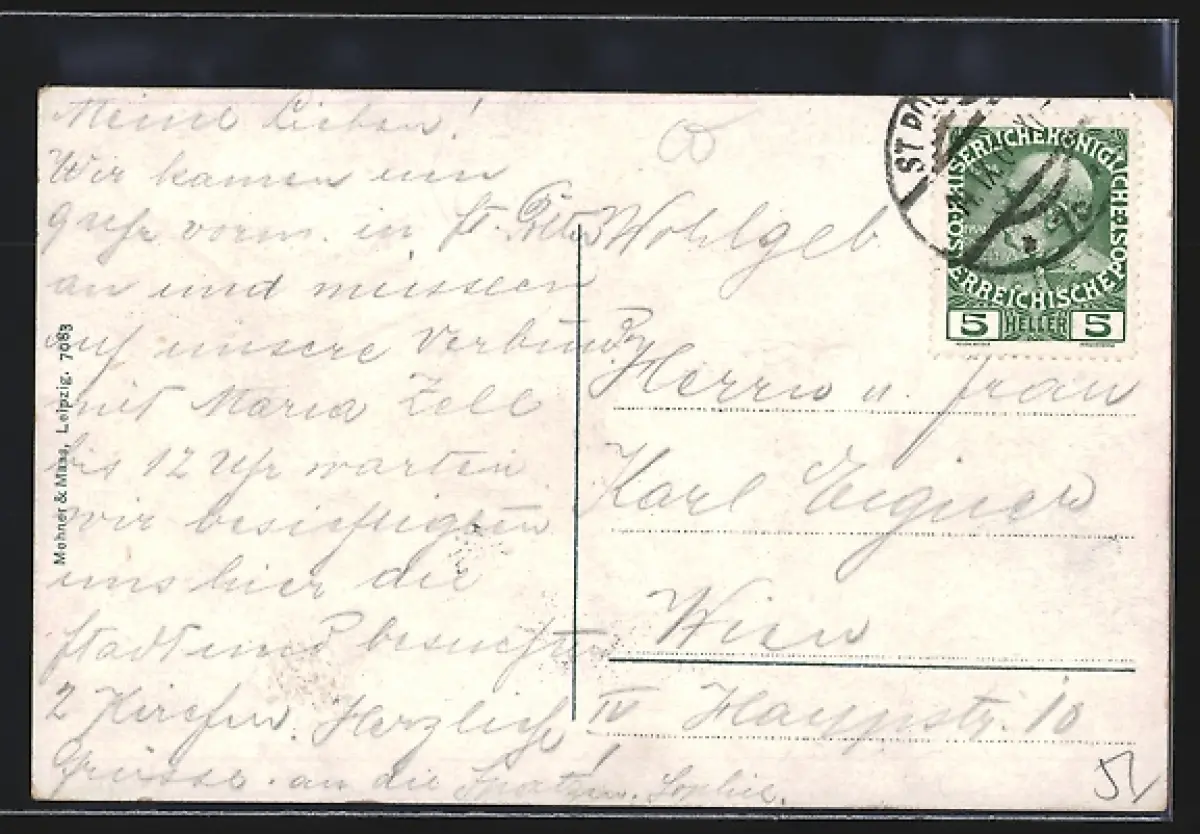 Meine Lieben!
Wir kamen um
9 Uhr vorm. in St. Pölten
an und müssen
auf unsere Verbindg
mit Maria Zell
bis 12 Uhr warten
wir besichtigten
uns hier die
Stadt und besuchten
2 Kirchen. Herzliche
Grüsse an die Sophie.
Mohner & Maas, Leipzig. 7083
Wohlgeb
Herrn u. Frau
Karl Eigner
Wien
IV Hauptstr. 10
51
KAISERLICHE KÖNIGLICHE
ÖSTERREICHISCHE POST
5 HELLER 5